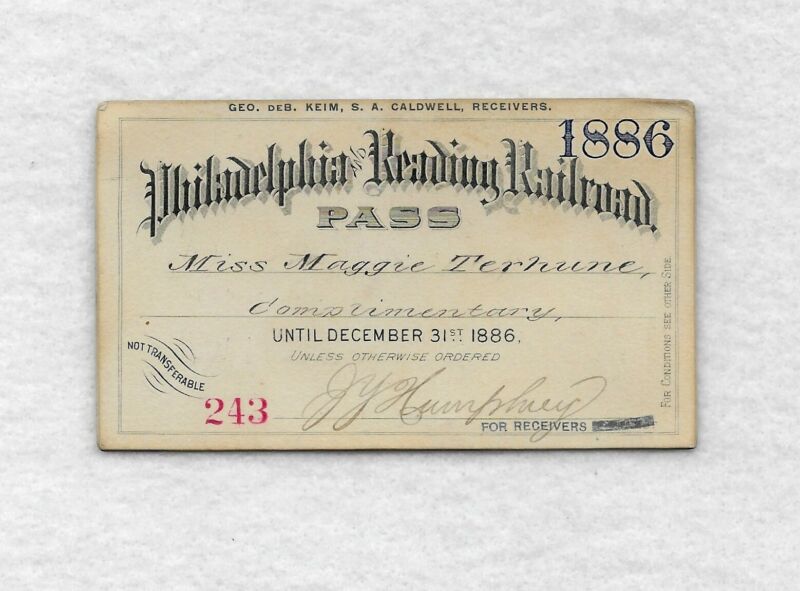 GEO. DEB. KEIM, S. A. CALDWELL, RECEIVERS.
1886
Philadelphia AND Reading Railroad.
PASS
Miss Maggie Terhune,
Complimentary,
UNTIL DECEMBER 31ST 1886,
UNLESS OTHERWISE ORDERED
NOT TRANSFERABLE
243
Humphrey
FOR RECEIVERS
FOR CONDITIONS SEE OTHER SIDE